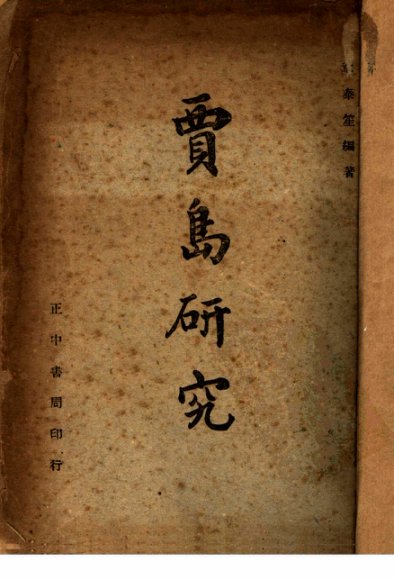 泰笙編著
賈島研究
正中書局印行